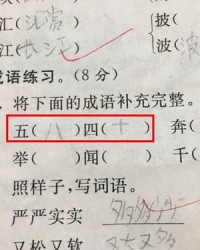 汇(汇赏) 披(披
江(长江) 波(波
成语练习。(8分)
将下面的成语补充完整。
五(八)四(十) 奔(
举( )闻( ) 千(
照样子，写词语。
严严实实
又松又软